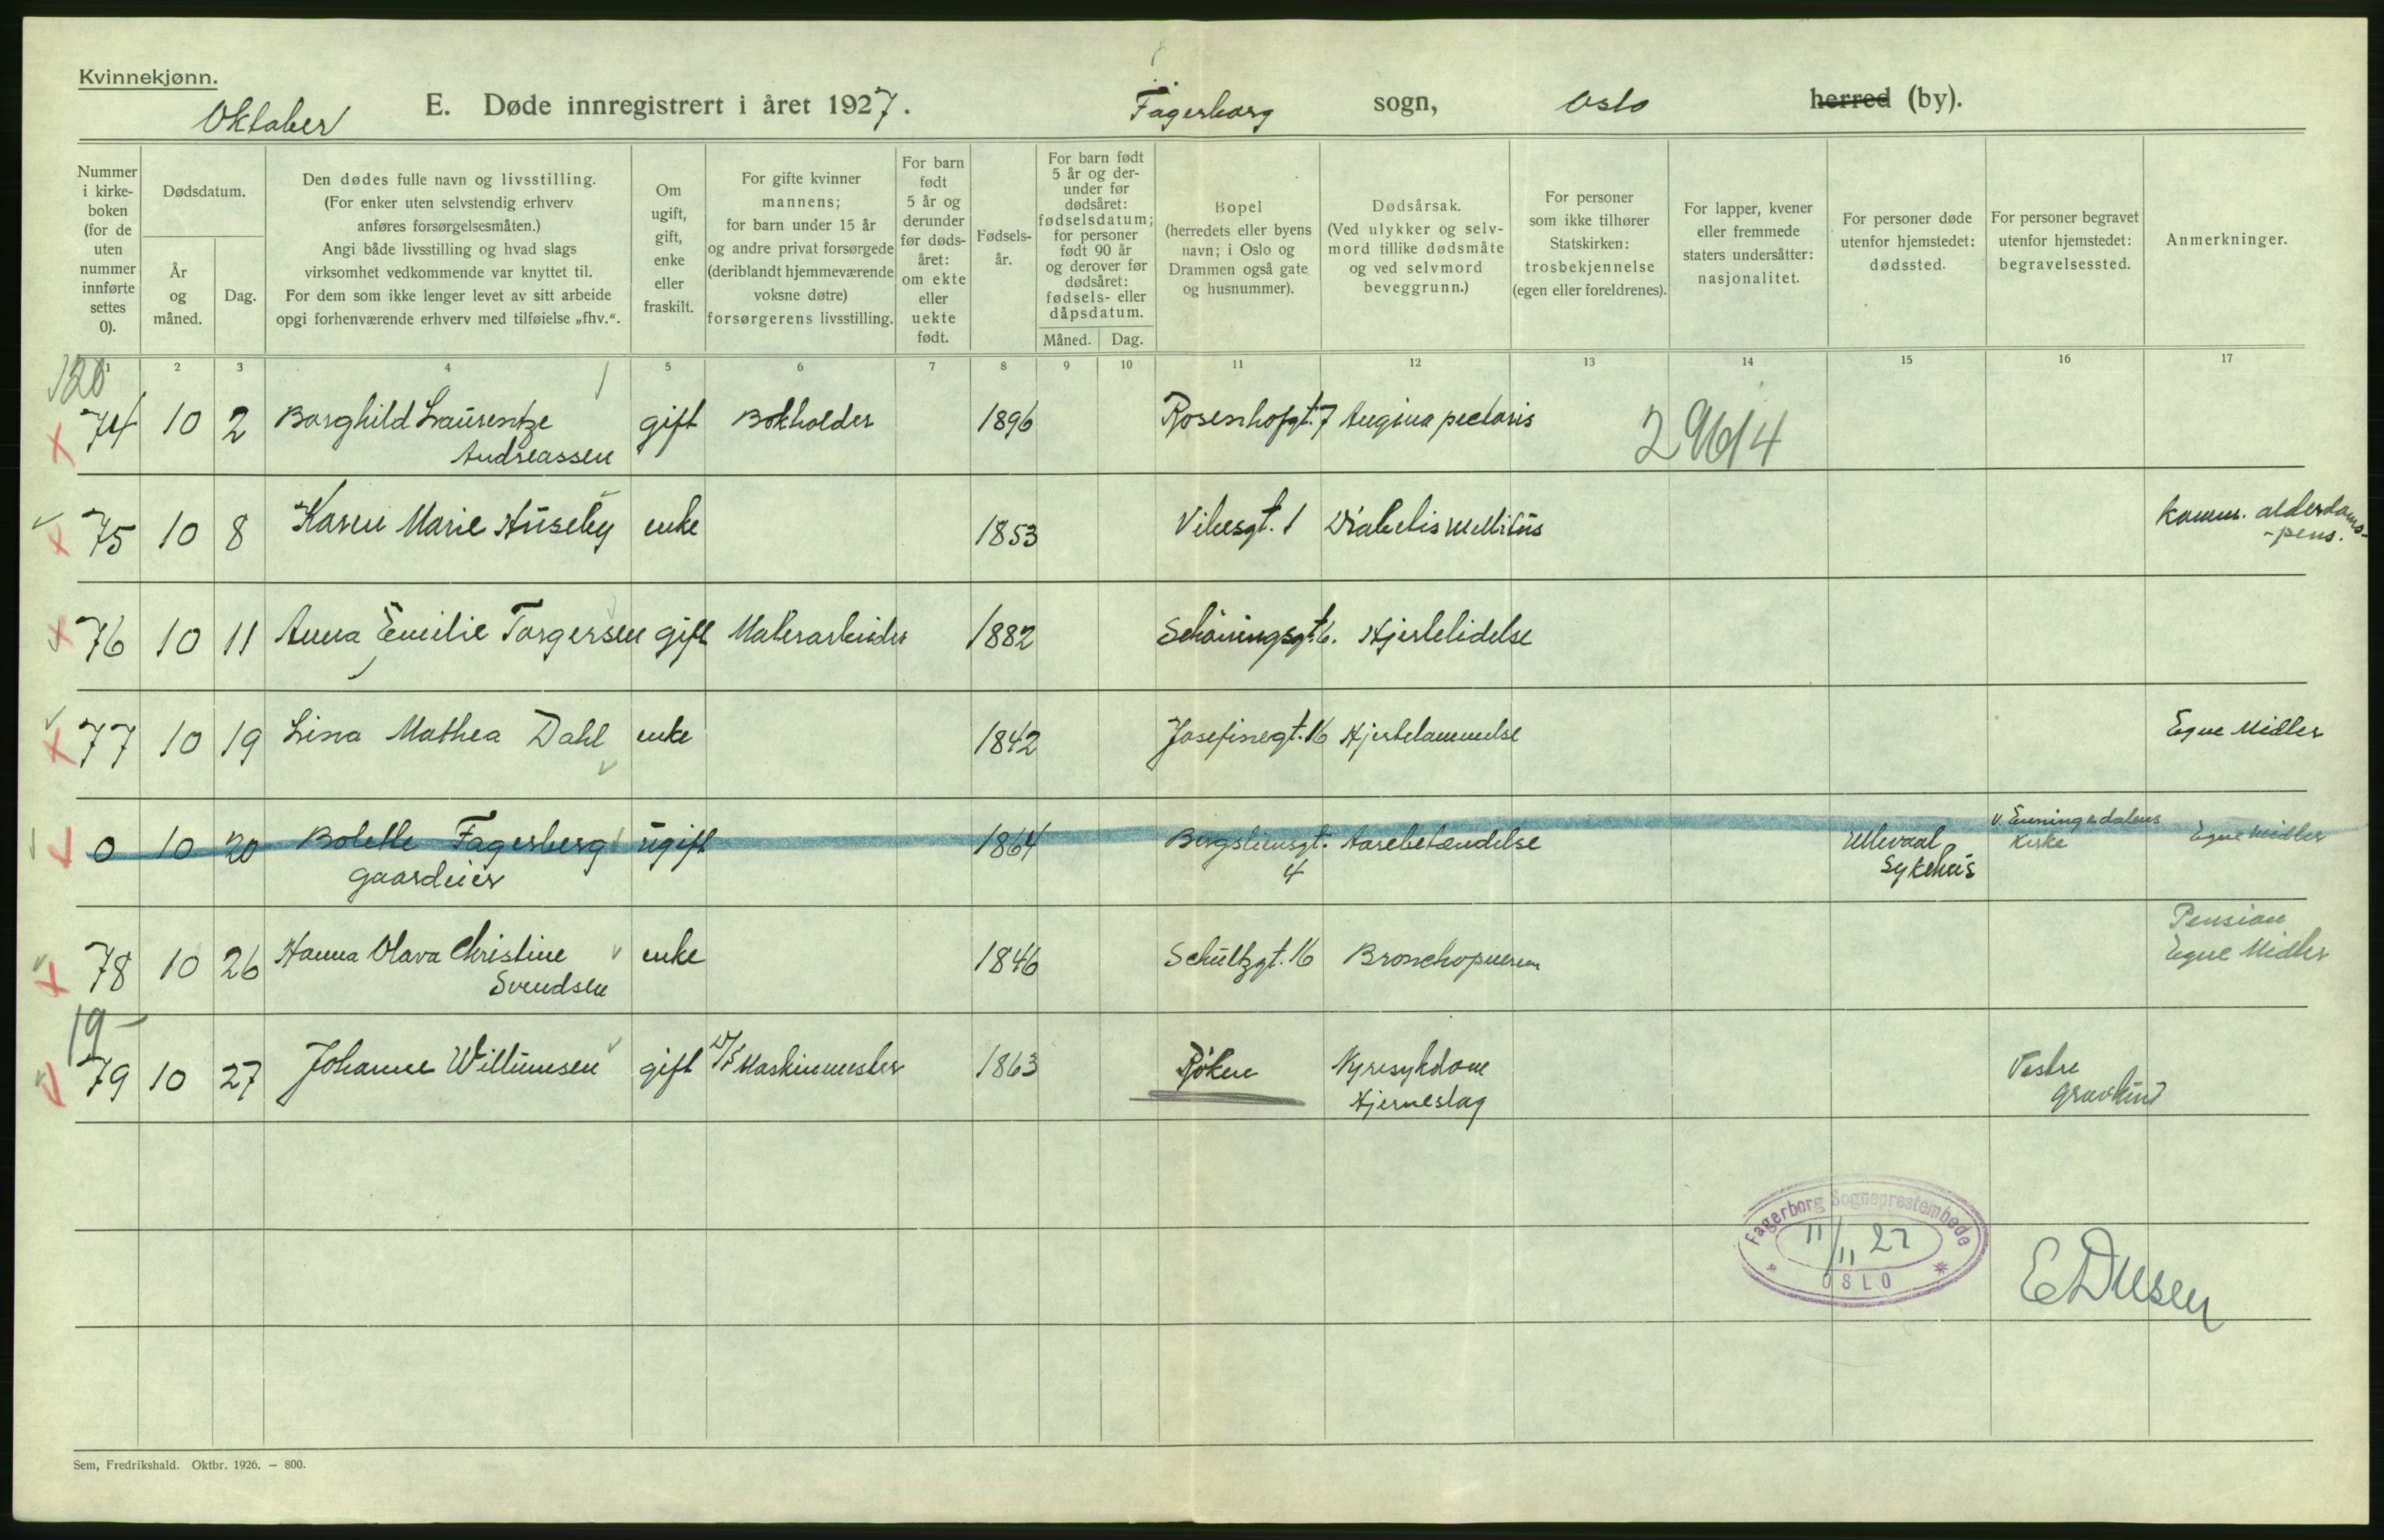 Kvinnekjønn.
Oktober
E. Døde innregistrert i året 1927.
Fagerborg sogn, Oslo herred (by).
Nummer i kirke-boken (for de uten nummer innførte settes 0).
Dødsdatum.
År og måned.
Dag.
Den dødes fulle navn og livsstilling.
(For enker uten selvstendig erhverv
anføres forsørgelsesmåten.)
Angi både livsstilling og hvad slags
virksomhet vedkommende var knyttet til.
For dem som ikke lenger levet av sitt arbeide
opgi forhenværende erhverv med tilføielse „fhv.“.
Om ugift, gift, enke eller fraskilt.
For gifte kvinner
mannens;
for barn under 15 år
og andre privat forsørgede
(deriblandt hjemmeværende
voksne døtre)
forsørgerens livsstilling.
For barn født 5 år og derunder før døds-året: om ekte eller uekte født.
Fødsels-år.
For barn født
5 år og der-
under før
dødsåret:
fødselsdatum;
for personer
født 90 år
og derover før
dødsåret:
fødsels- eller
dåpsdatum.
Måned. Dag.
Bopel
(herredets eller byens
navn; i Oslo og
Drammen også gate
og husnummer).
Dødsårsak.
(Ved ulykker og selv-
mord tillike dødsmåte
og ved selvmord
beveggrunn.)
For personer
som ikke tilhører
Statskirken:
trosbekjennelse
(egen eller foreldrenes).
For lapper, kvener
eller fremmede
staters undersåtter:
nasjonalitet.
For personer døde
utenfor hjemstedet:
dødssted.
For personer begravet
utenfor hjemstedet:
begravelsessted.
Anmerkninger.
1 2 3 4 5 6 7 8 9 10 11 12 13 14 15 16 17
120
74 10 2 Borghild Laurentze gift Bokholder 1896 Rosenhofgt. 7 Angina pectoris
Andreassen
29614
75 10 8 Karen Marie Huseby enke 1853 Vibesgt. 1 Diabetis mellitus Komm. alderdoms-
-pens.
76 10 11 Anna Emilie Torgersen gift Malerarbeider 1882 Schøningsgt. 6. Hjertelidelse
77 10 19 Lina Mathea Dahl enke 1842 Josefinegt. 16 Hjertelammelse Egne Midler
0 10 20 Bolette Fagerberg ugift 1864 Bergsliensgt. Aarebetændelse Ullevaal v. Enningedalens Egne Midler
gaardeier 4 Sykehus Kirke
78 10 26 Hanna Olava Christine enke 1846 Schultzgt. 16 Bronchopneum Pension
Svendsen Egne Midler
19
79 10 27 Johanne Willumsen gift Maskinmester 1863 Røken Nyresykdom Vestre
Hjerneslag gravlund
Fagerborg Sogneprestembede
11/11 27
OSLO
Sem, Fredrikshald. Oktbr. 1926. — 800.